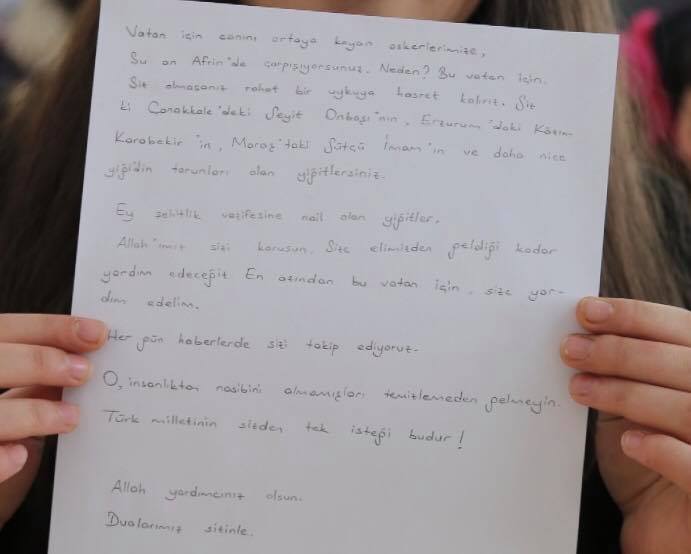 Vatan için canını ortaya koyan askerlerimize,
Şu an Afrin'de çarpışıyorsunuz. Neden? Bu vatan için.
Siz olmasanız rahat bir uykuya hasret kalırız. Siz
ki Çanakkale'deki Seyit Onbaşı'nın, Erzurum'daki Kazım
Karabekir'in, Maraş'taki Sütçü İmam'ın ve daha nice
yiğidin torunları olan yiğitlersiniz.
Ey şehitlik vazifesine nail olan yiğitler,
Allah'ımız sizi korusun. Size elimizden geldiği kadar
yardım edeceğiz. En azından bu vatan için, size yar-
dım edelim.
Her gün haberlerde sizi takip ediyoruz.
O, insanlıktan nasibini almamışları temizlemeden gelmeyin.
Türk milletinin sizden tek isteği budur!
Allah yardımcınız olsun.
Dualarımız sizinle.